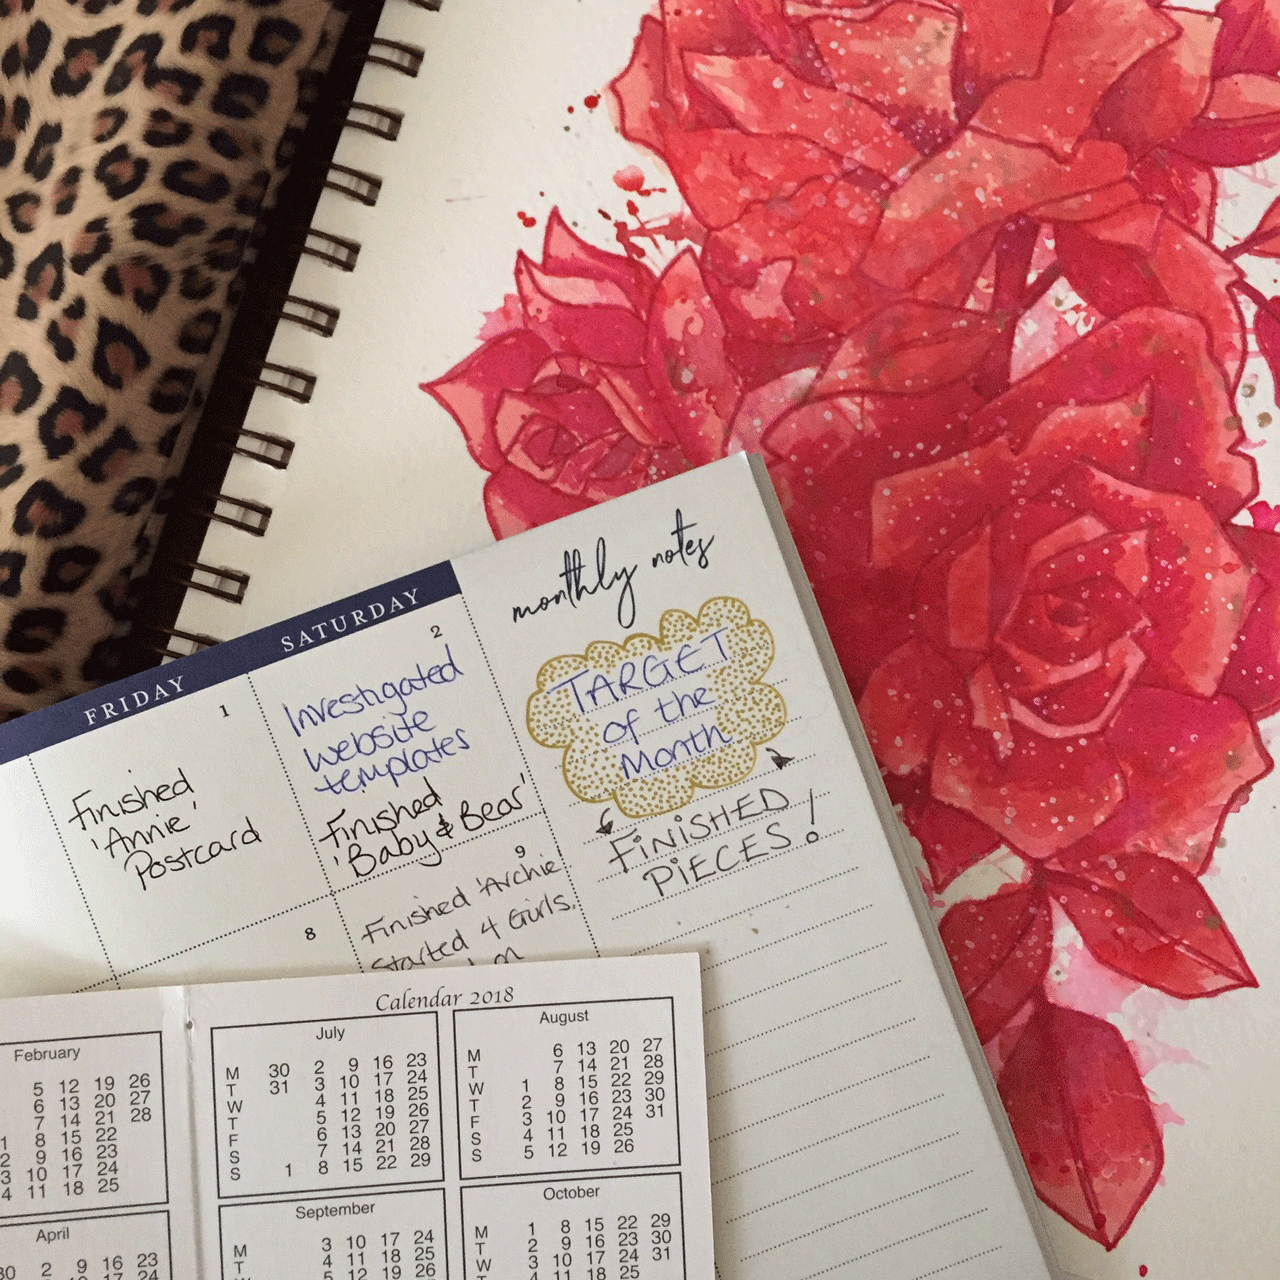 monthly notes
FRIDAY
SATURDAY
1
2
Finished
'Annie'
Postcard
Investigated
website
templates
Finished
'Baby & Bear'
TARGET
of the
Month
FINISHED
PIECES!
8
9
Finished 'Archie
Started 4 Girls.
on
Calendar 2018
February
5 12 19 26
6 13 20 27
7 14 21 28
1 8 15 22
2 9 16 23
3 10 17 24
4 11 18 25
July
M 30 2 9 16 23
T 31 3 10 17 24
W 4 11 18 25
T 5 12 19 26
F 6 13 20 27
S 7 14 21 28
S 1 8 15 22 29
August
M 6 13 20 27
T 7 14 21 28
W 1 8 15 22 29
T 2 9 16 23 30
F 3 10 17 24 31
S 4 11 18 25
S 5 12 19 26
April
30 2 9 16 23
10 17 24
September
M 3 10 17 24
T 4 11 18 25
W 5 12 19 26
October
M 1 8 15 22 29
T 2 9 16 23 30
W 3 10 17 24 31
T 4 11 18 25